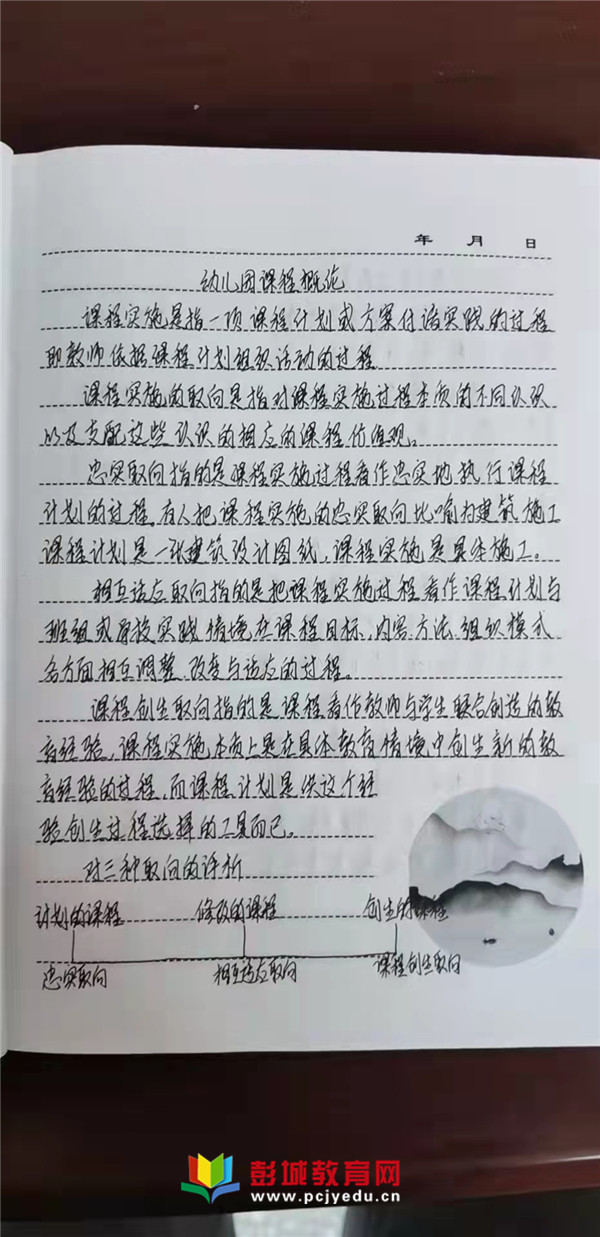 年 月 日
幼儿园课程概论
课程实施是指一项课程计划或方案付诸实践的过程
即教师依据课程计划组织活动的过程
课程实施的取向是指对课程实施过程本质的不同认识
以及支配这些认识的相应的课程价值观。
忠实取向指的是课程实施过程看作忠实地执行课程
计划的过程,有人把课程实施的忠实取向比喻为建筑施工
课程计划是一张建筑设计图纸,课程实施是具体施工。
相互适应取向指的是把课程实施过程看作课程计划与
班组或学校实践情境在课程目标、内容、方法、组织模式
各方面相互调整、改变与适应的过程。
课程创生取向指的是课程看作教师与学生联合创造的教
育经验,课程实施本质上是在具体教育情境中创生新的教
育经验的过程,而课程计划是供这个经
验创生过程选择的工具而已。
对三种取向的评析
计划的课程 修改的课程 创生的课程
忠实取向 相互适应取向 课程创生取向
彭城教育网
www.pcjyedu.cn